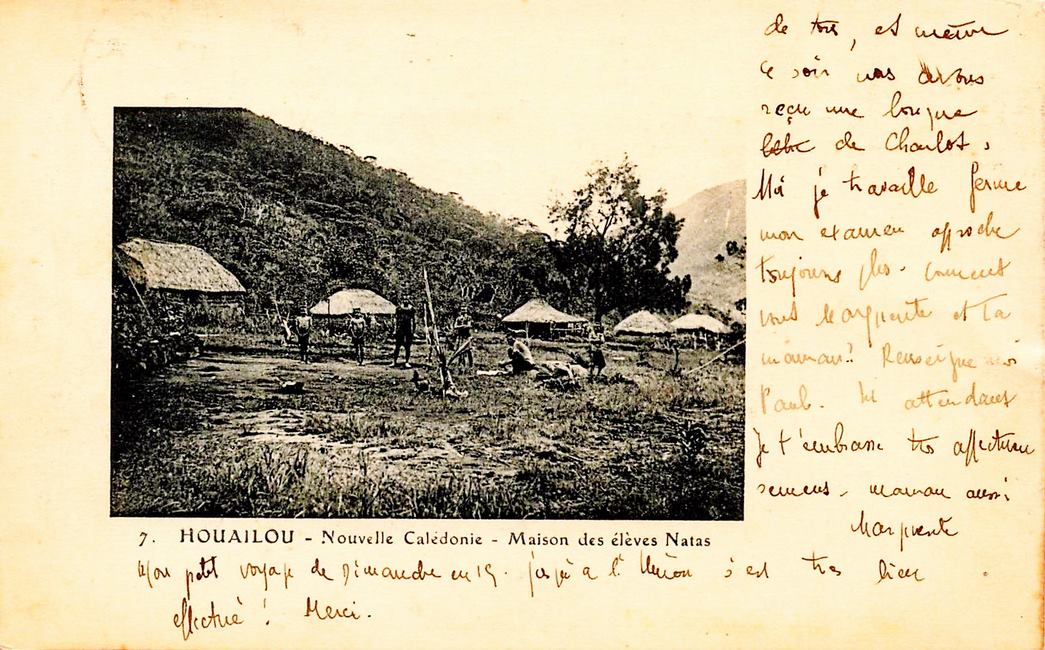 de toi, et même
ce soir nous avons
reçu une longue
lettre de Charlot.
Moi je travaille ferme
mon examen approche
toujours plus. Comment
vont Marguerite et ta
maman? Renseigne moi
Paul. En attendant
Je t'embrasse très affectueu
sement. maman aussi
Marguerite
7. HOUAILOU - Nouvelle Calédonie - Maison des élèves Natas
Mon petit voyage de Dimanche en 15. jusqu'à l'Union s'est très bien
effectué! Merci.